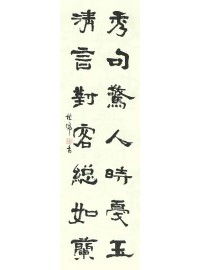 秀句驚人時戛玉
清言對客總如蘭